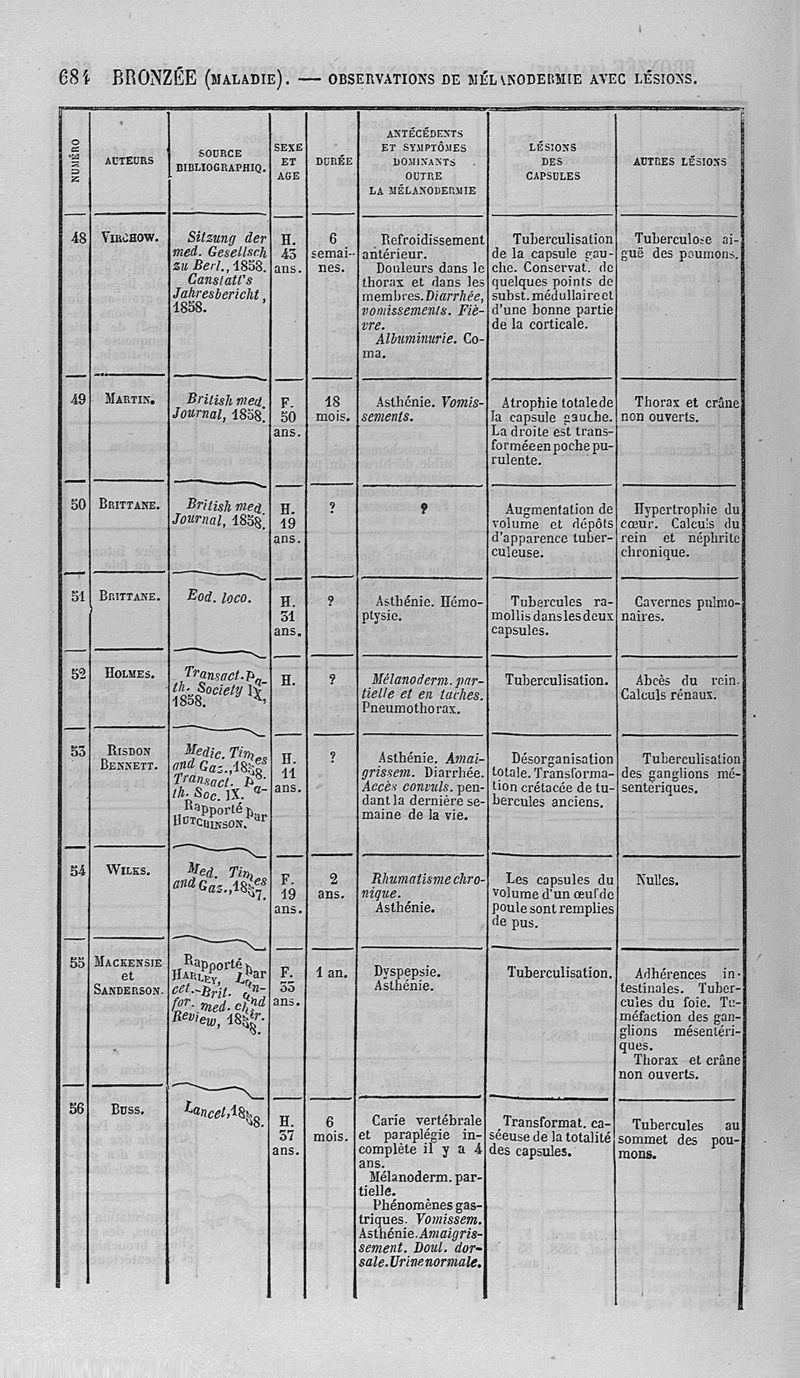 684 BRONZÉE (MALADIE). — OBSERVATIONS DE MÉLANODERMIE AVEC LÉSIONS.
NUMÉRO
AUTEURS
SOURCE
BIBLIOGRAPHIQ.
SEXE
ET
AGE
DURÉE
ANTÉCÉDENTS
ET SYMPTÔMES
DOMINANTS
OUTRE
LA MÉLANODERMIE
LÉSIONS
DES
CAPSULES
AUTRES LÉSIONS
48
VIRCHOW.
Sitzung der
med. Gesellsch
zu Berl., 1858.
Canstatt's
Jahresbericht,
1858.
H.
43
ans.
6
semai-
nes.
Refroidissement
antérieur.
Douleurs dans le
thorax et dans les
membres. Diarrhée,
vomissements. Fiè-
vre.
Albuminurie. Co-
ma.
Tuberculisation
de la capsule gau-
che. Conservat. de
quelques points de
subst. médullaire et
d'une bonne partie
de la corticale.
Tuberculose ai-
guë des poumons.
49
MARTIN.
British med.
Journal, 1858.
F.
50
ans.
18
mois.
Asthénie. Vomis-
sements.
Atrophie totale de
la capsule gauche.
La droite est trans-
formée en poche pu-
rulente.
Thorax et crâne
non ouverts.
50
BRITTANE.
British med.
Journal, 1858.
H.
19
ans.
?
?
Augmentation de
volume et dépôts
d'apparence tuber-
culeuse.
Hypertrophie du
cœur. Calculs du
rein et néphrite
chronique.
51
BRITTANE.
Eod. loco.
H.
31
ans.
?
Asthénie. Hémo-
ptysie.
Tubercules ra-
mollis dans les deux
capsules.
Cavernes pulmo-
naires.
52
HOLMES.
Transact. Pa-
th. Society IX,
1858.
H.
?
Mélanoderm. par-
tielle et en taches.
Pneumothorax.
Tuberculisation.
Abcès du rein.
Calculs rénaux.
53
RISDON
BENNETT.
Medic. Times
and Gaz., 1858.
Transact. Pa-
th. Soc. IX.
Rapporté par
HUTCHINSON.
H.
11
ans.
?
Asthénie. Amai-
grissem. Diarrhée.
Accès convuls. pen-
dant la dernière se-
maine de la vie.
Désorganisation
totale. Transforma-
tion crétacée de tu-
bercules anciens.
Tuberculisation
des ganglions mé-
sentériques.
54
WILKS.
Med. Times
and Gaz., 1857.
F.
19
ans.
2
ans.
Rhumatisme chro-
nique.
Asthénie.
Les capsules du
volume d'un œuf de
poule sont remplies
de pus.
Nulles.
55
MACKENSIE
et
SANDERSON.
Rapporté par
HARLEY, Lan-
cet.-Brit. and
for. med. chir.
Review, 1858.
F.
35
ans.
1 an.
Dyspepsie.
Asthénie.
Tuberculisation.
Adhérences in-
testinales. Tuber-
cules du foie. Tu-
méfaction des gan-
glions mésentéri-
ques.
Thorax et crâne
non ouverts.
56
BUSS.
Lancet, 1858.
H.
37
ans.
6
mois.
Carie vertébrale
et paraplégie in-
complète il y a 4
ans.
Mélanoderm. par-
tielle.
Phénomènes gas-
triques. Vomissem.
Asthénie. Amaigris-
sement. Doul. dor-
sale. Urine normale.
Transformat. ca-
séeuse de la totalité
des capsules.
Tubercules au
sommet des pou-
mons.